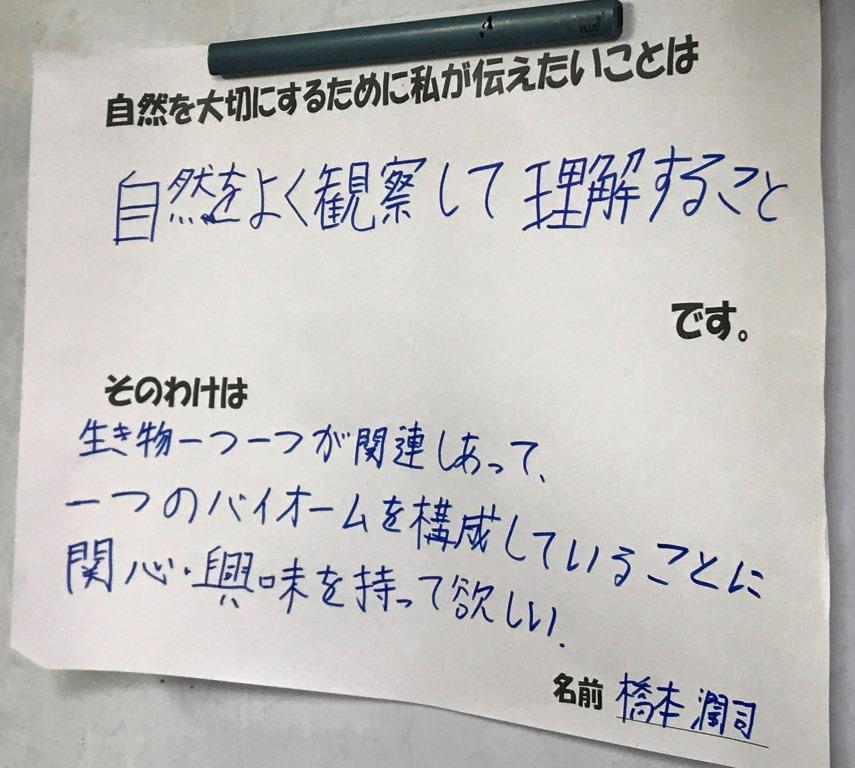 PLUS
自然を大切にするために私が伝えたいことは
自然をよく観察して理解すること
です。
そのわけは
生き物一つ一つが関連しあって、
一つのバイオームを構成していることに
関心・興味を持って欲しい.
名前 橋本潤司